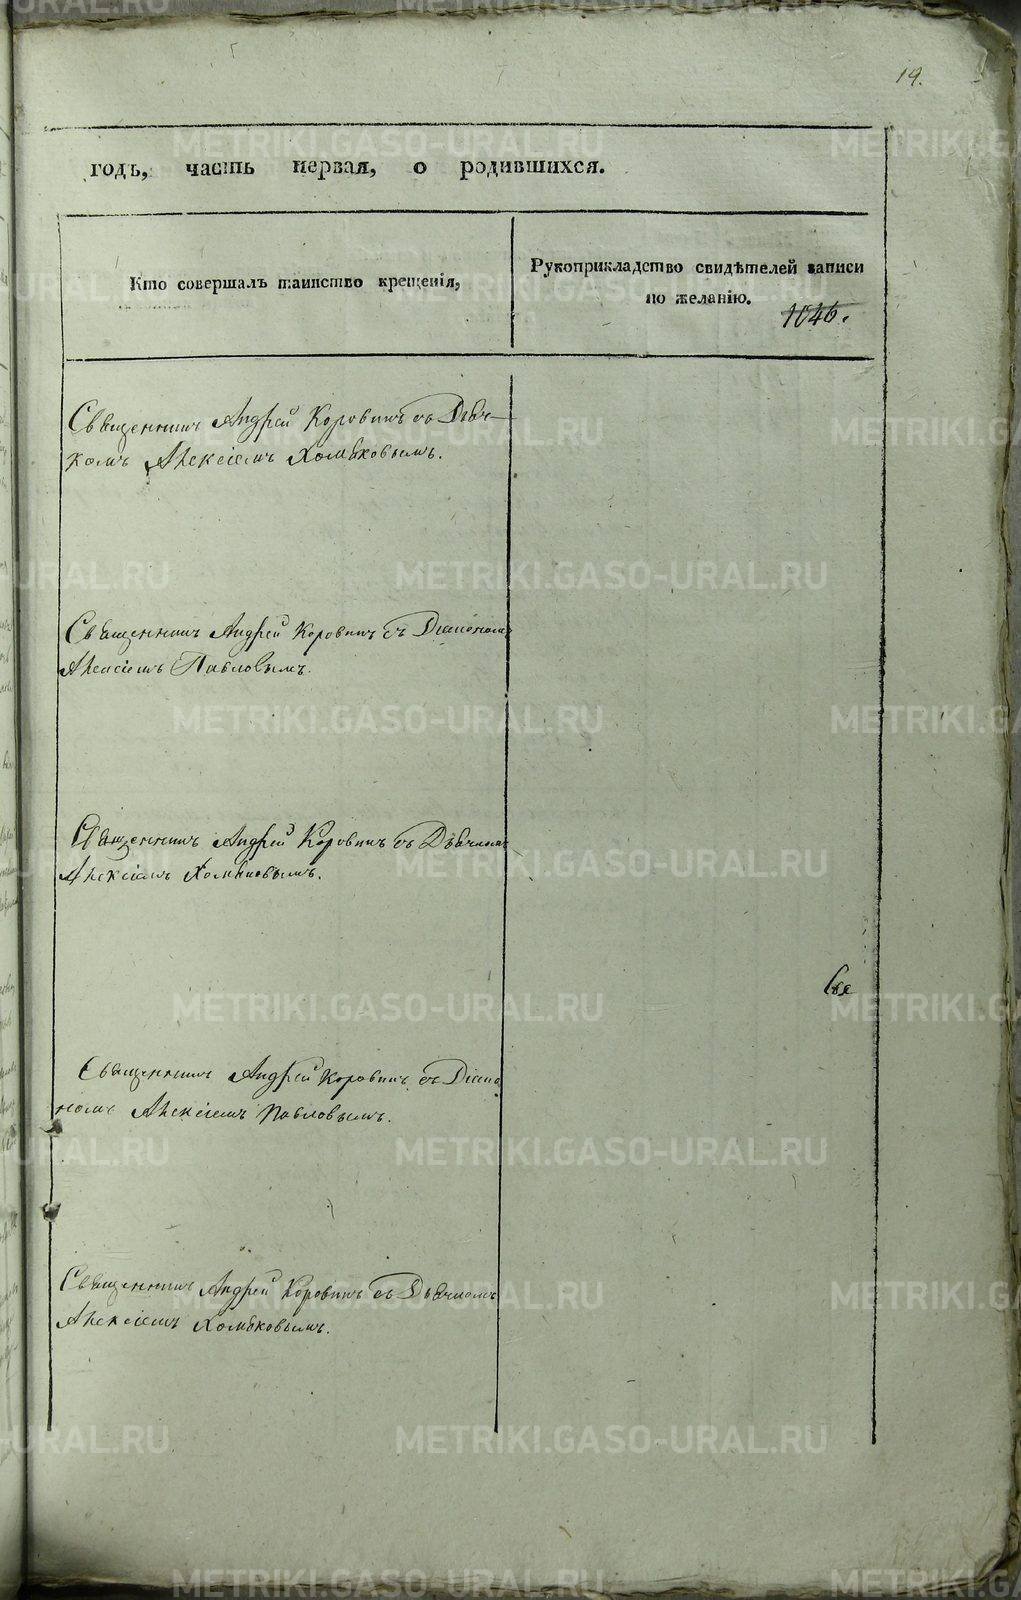 19.
годъ, часть первая, о родившихся.
Кто совершалъ таинство крещенія,
Рукоприкладство свидѣтелей записи
по желанію.
1046.
Священникъ Андрей Коровинъ съ Дьяч-
комъ Алексіемъ Хомяковымъ.
Священникъ Андрей Коровинъ съ Діакономъ
Алексіемъ Павловымъ.
Священникъ Андрей Коровинъ съ Дьячкомъ
Алексіемъ Хомяковымъ.
Священникъ Андрей Коровинъ съ Діако
номъ Алексіемъ Павловымъ.
Священникъ Андрей Коровинъ съ Дьячкомъ
Алексіемъ Хомяковымъ.
METRIKI.GASO-URAL.RU